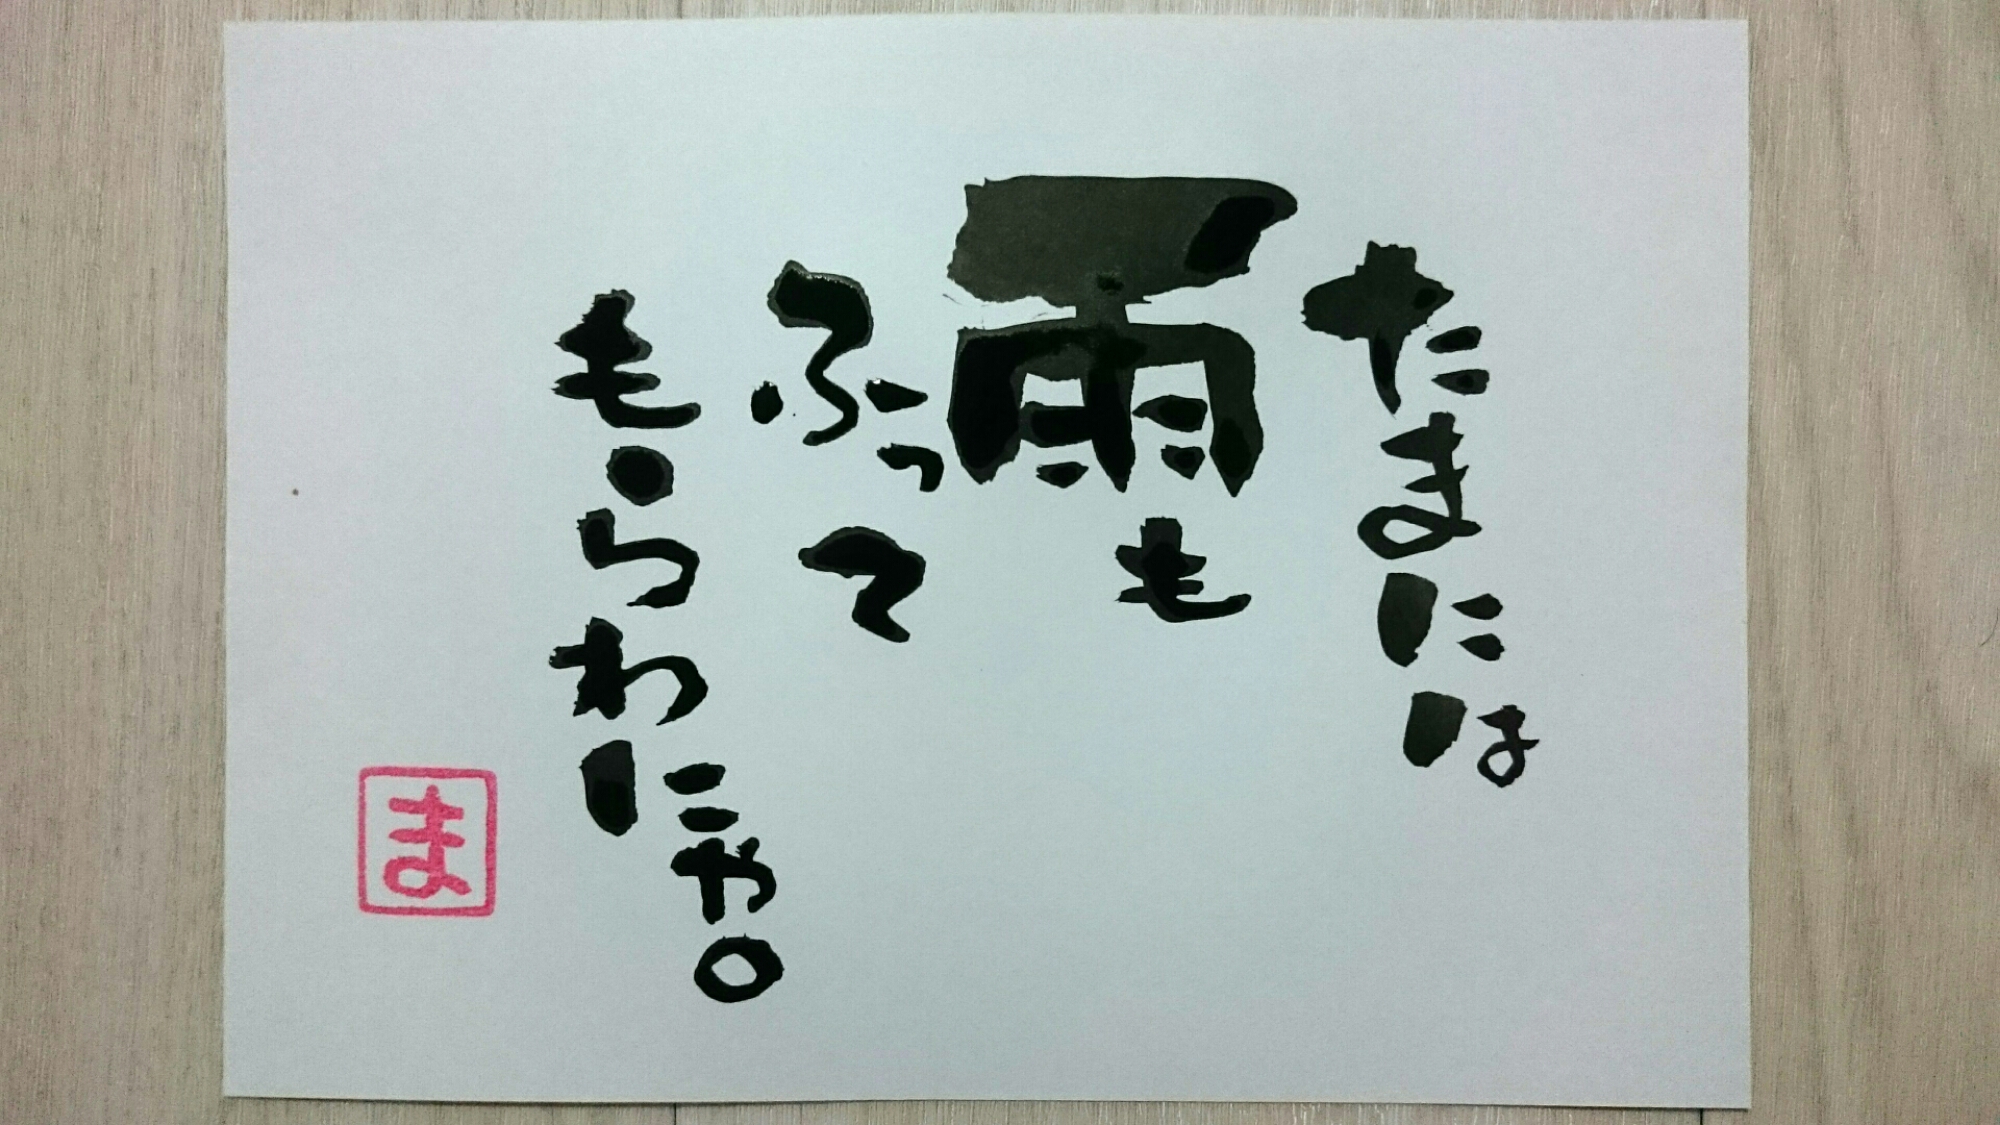 たまには
雨も
ふって
もらわにゃ。
ま